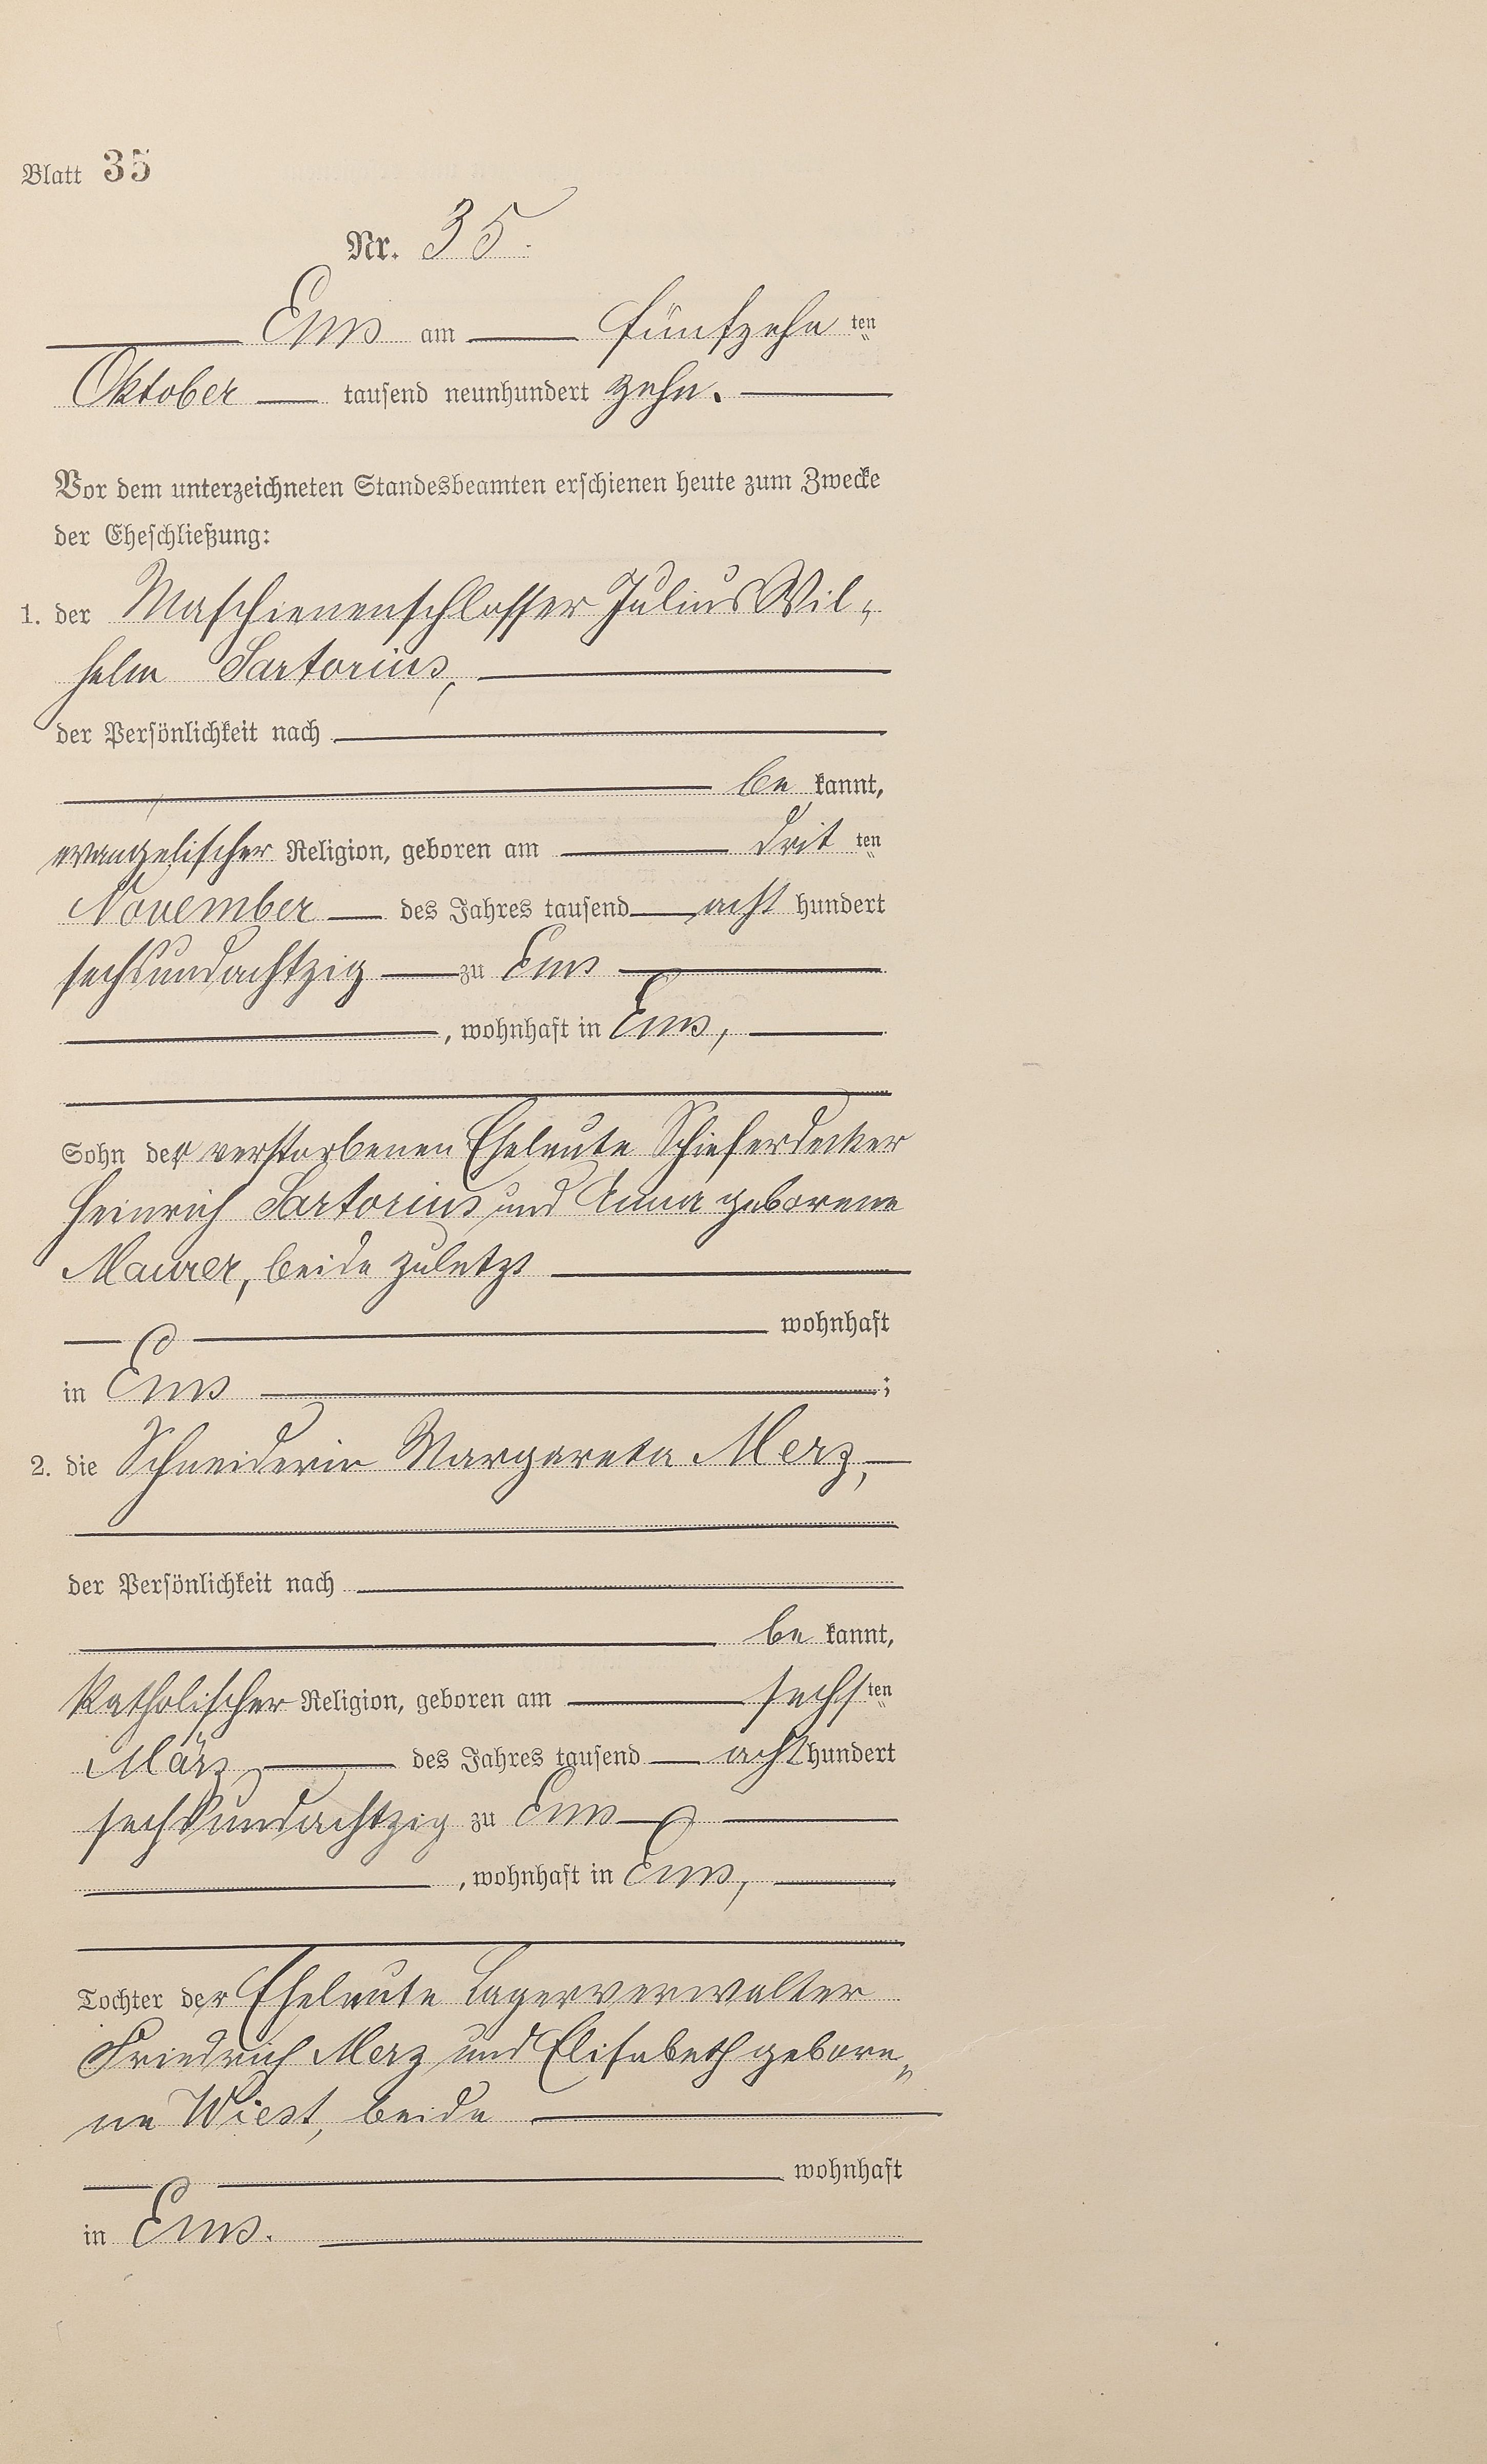 Blatt 35
Nr. 35.
Ems am fünfzehn ten
Oktober tausend neunhundert zehn.
Vor dem unterzeichneten Standesbeamten erschienen heute zum Zwecke
der Eheschließung:
1. der Maschienenschlosser Julius Wil-
helm Sartorius,
der Persönlichkeit nach
be kannt,
evangelischer Religion, geboren am drit ten
November des Jahres tausend acht hundert
sechsundachtzig zu Ems
, wohnhaft in Ems,
Sohn der verstorbenen Eheleute Schieferdecker
Heinrich Sartorius und Anna geborene
Maurer, beide zuletzt
wohnhaft
in Ems ;
2. die Schneiderin Margareta Merz,
der Persönlichkeit nach
be kannt,
katholischer Religion, geboren am sechs ten
März des Jahres tausend acht hundert
sechsundachtzig zu Ems
, wohnhaft in Ems,
Tochter der Eheleute Lagerverwalter
Friedrich Merz und Elisabeth gebore-
ne Wiest, beide
wohnhaft
in Ems.